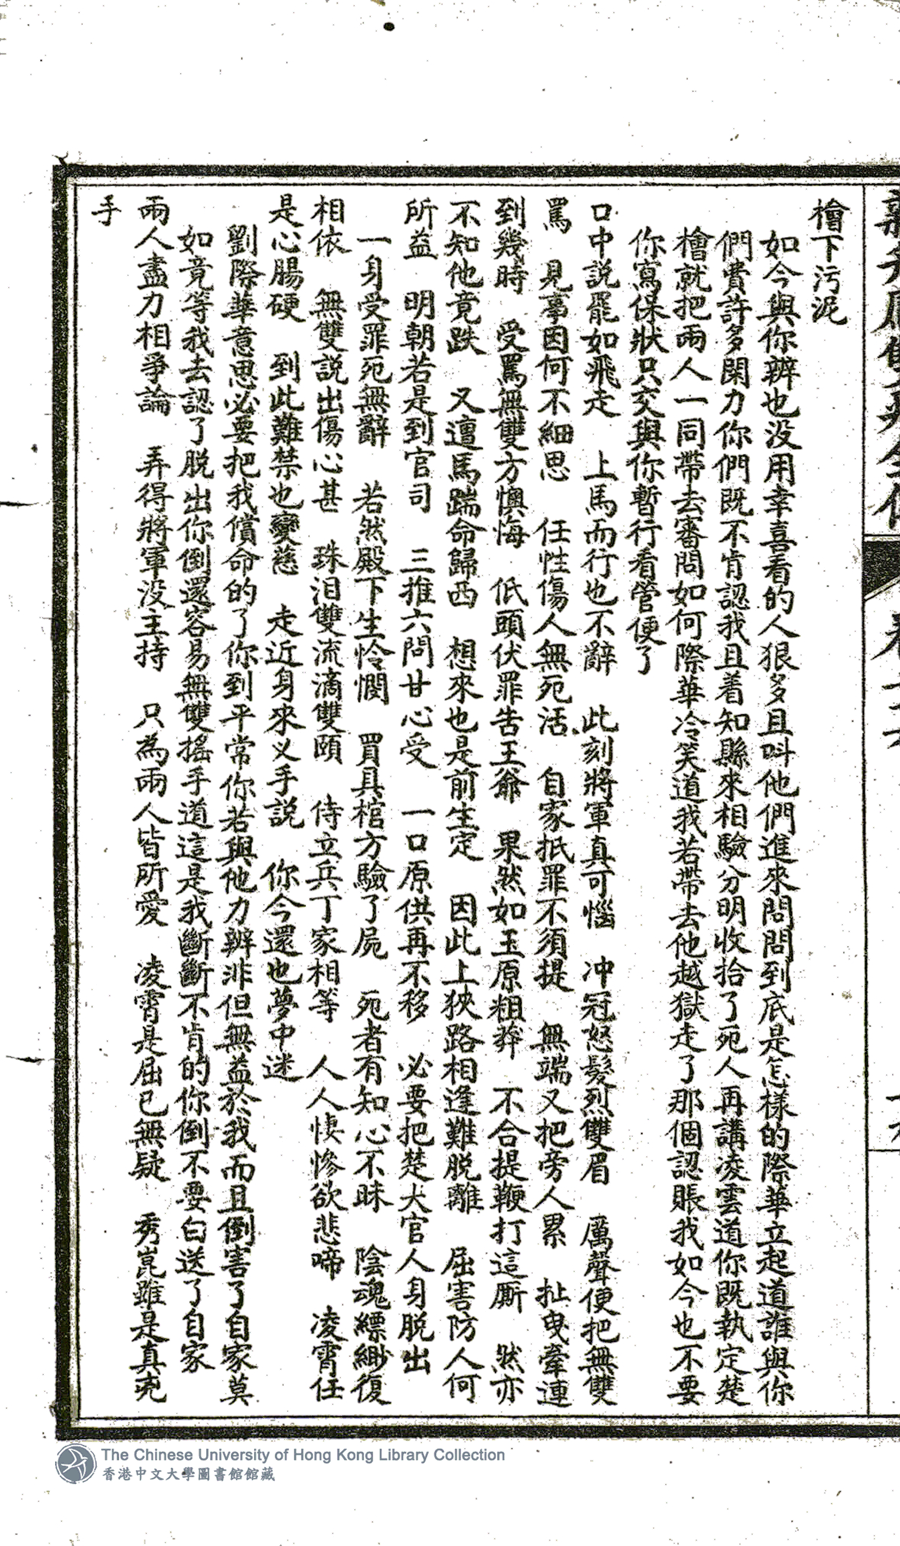 檜下污泥
如今與你辨也没用幸喜看的人狠多且呌他們進來問問到底是怎樣的際華立起道誰與你
們費許多閑力你們既不肯認我且着知縣來相驗分明收拾了死人再講凌雲道你既執定楚
檜就把兩人一同帶去審問如何際華冷笑道我若帶去他越獄走了那個認賬我如今也不要
你寫保狀只交與你暫行看管便了
口中説罷如飛走　上馬而行也不辭　此刻將軍真可惱　冲冠怒髮烈雙眉　厲聲便把無雙
罵　見事因何不細思　任性傷人無死活　自家抵罪不須提　無端又把旁人累　扯曳牽連
到幾時　受罵無雙方懊悔　低頭伏罪告王爺　果然如玉原粗莽　不合提鞭打這厮　然亦
不知他竟跌　又遭馬踹命歸西　想來也是前生定　因此上狹路相逢難脱離　屈害防人何
所益　明朝若是到官司　三推六問甘心受　一口原供再不移　必要把楚大官人身脱出
一身受罪死無辭　若然殿下生怜憫　買具棺方驗了屍　死者有知心不昧　陰魂縹緲復
相依　無雙説出傷心甚　珠泪雙流滴雙頤　侍立兵丁家相等　人人悽慘欲悲啼　凌霄任
是心腸硬　到此難禁也變慈　走近身來义手説　你今還也夢中迷
劉際華意思必要把我償命的了你到平常你若與他力辨非但無益於我而且倒害了自家莫
如竟等我去認了脱出你倒還容易無雙搖手道這是我斷斷不肯的你倒不要白送了自家
兩人盡力相爭論　弄得將軍没主持　只為兩人皆所愛　凌霄是屈已無疑　秀崑雖是真兇
手
The Chinese University of Hong Kong Library Collection
香港中文大學圖書館館藏